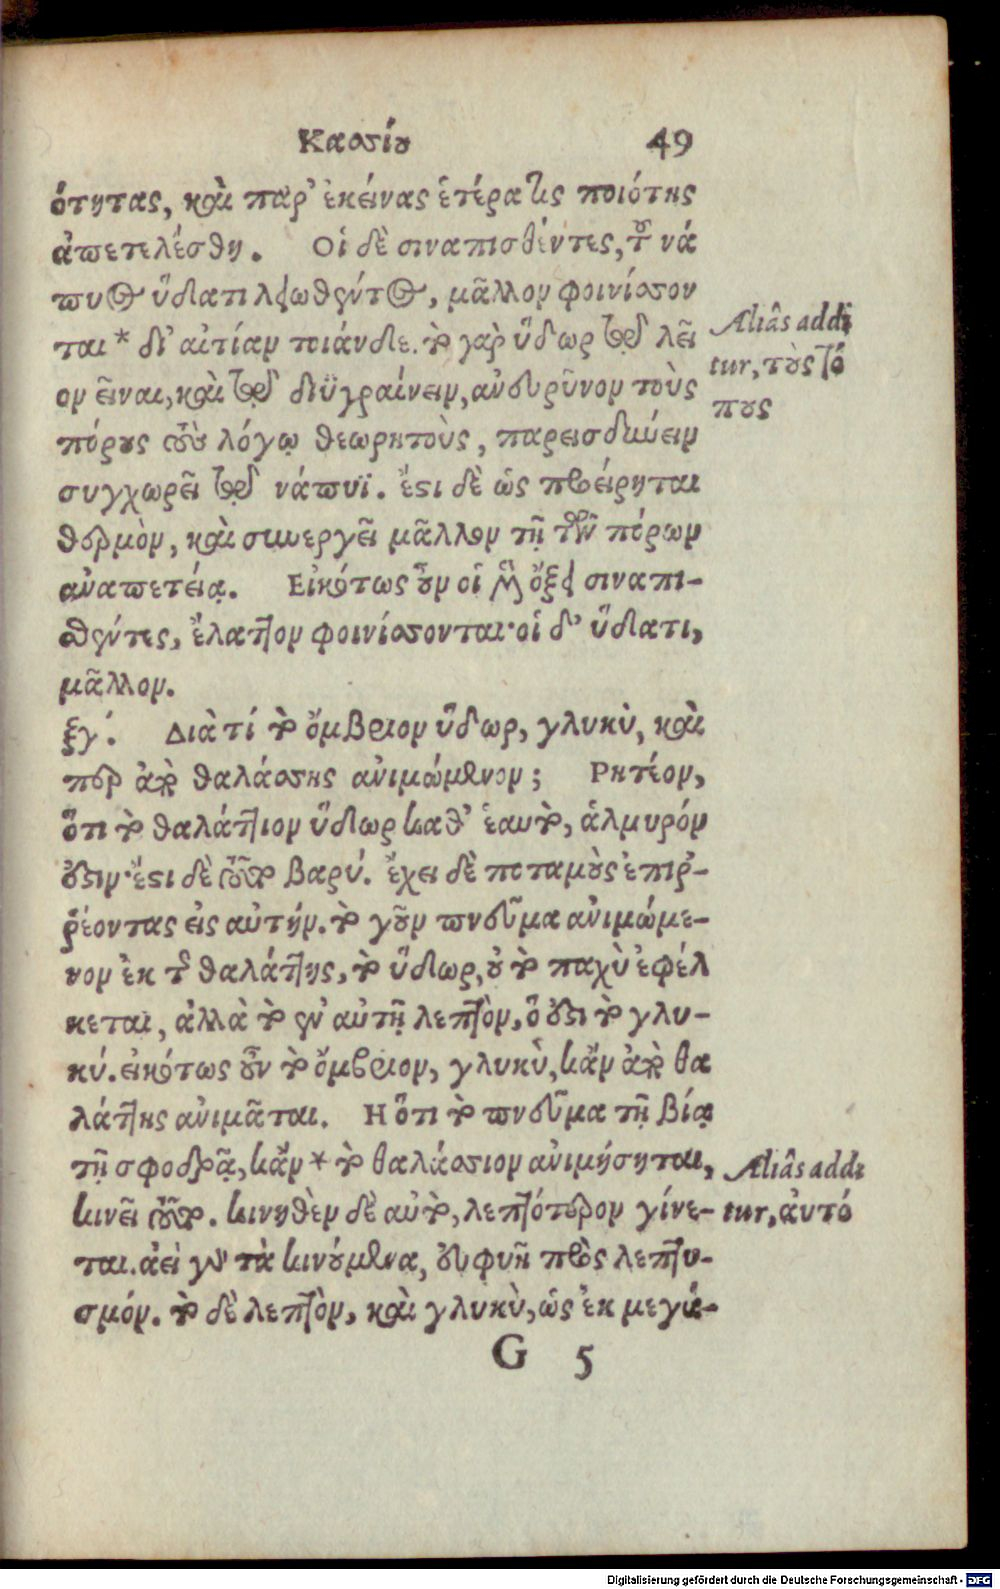 Κασσίου 49
ότητας, καὶ παρ' ἐκείνας ἑτέρα τις ποιότης
ἀπετελέσθη. Οἱ δὲ σιναπισθέντες, τοῦ νά
πυος ὕδατι λειωθέντος, μᾶλλον φοινίσσον
ται * δι' αἰτίαν τοιάνδε. τὸ γὰρ ὕδωρ τῷ λεῖ
ον εἶναι, καὶ τῷ διϋγραίνειν, ἀνευρῦνον τοὺς
πόρους τοὺς λόγῳ θεωρητοὺς, παρεισδύνειν
συγχωρεῖ τῷ νάπυϊ. ἔστι δὲ ὡς προείρηται
θερμὸν, καὶ συνεργεῖ μᾶλλον τῇ τῶν πόρων
ἀναπετείᾳ. Εἰκότως οὖν οἱ μὲν ὄξει σιναπι-
σθέντες, ἔλαττον φοινίσσονται· οἱ δ' ὕδατι,
μᾶλλον.
ξγ΄. Διὰ τί τὸ ὄμβριον ὕδωρ, γλυκὺ, καὶ
περ ἀπὸ θαλάσσης ἀνιμώμενον; Ρητέον,
ὅτι τὸ θαλάττιον ὕδωρ καθ' ἑαυτὸ, ἁλμυρόν
ἐστιν· ἔστι δὲ τοῦτο βαρύ. ἔχει δὲ ποταμοὺς ἐπιῤ-
ῥέοντας εἰς αὐτήν. τὸ γοῦν πνεῦμα ἀνιμώμε-
νον ἐκ τῆς θαλάττης, τὸ ὕδωρ, οὐ τὸ παχὺ ἐφέλ
κεται, ἀλλὰ τὸ ἐν αὐτῇ λεπτὸν, ὅ ἐστι τὸ γλυ-
κύ. εἰκότως οὖν τὸ ὄμβριον, γλυκὺ, κἂν ἀπὸ θα
λάττης ἀνιμᾶται. Η ὅτι τὸ πνεῦμα τῇ βίᾳ
τῇ σφοδρᾷ, κἂν * τὸ θαλάσσιον ἀνιμήσηται,
κινεῖ τοῦτο. κινηθὲν δὲ αὐτὸ, λεπτότερον γίνε-
ται. ἀεὶ γὰρ τὰ κινούμενα, εὐφυῆ πρὸς λεπτυ-
σμόν. τὸ δὲ λεπτὸν, καὶ γλυκὺ, ὡς ἐκ μεγά-
G 5
Aliâs addi
tur, τοὺς τό
πους
Aliâs addi
tur, αὐτό
Digitalisierung gefördert durch die Deutsche Forschungsgemeinschaft - DFG